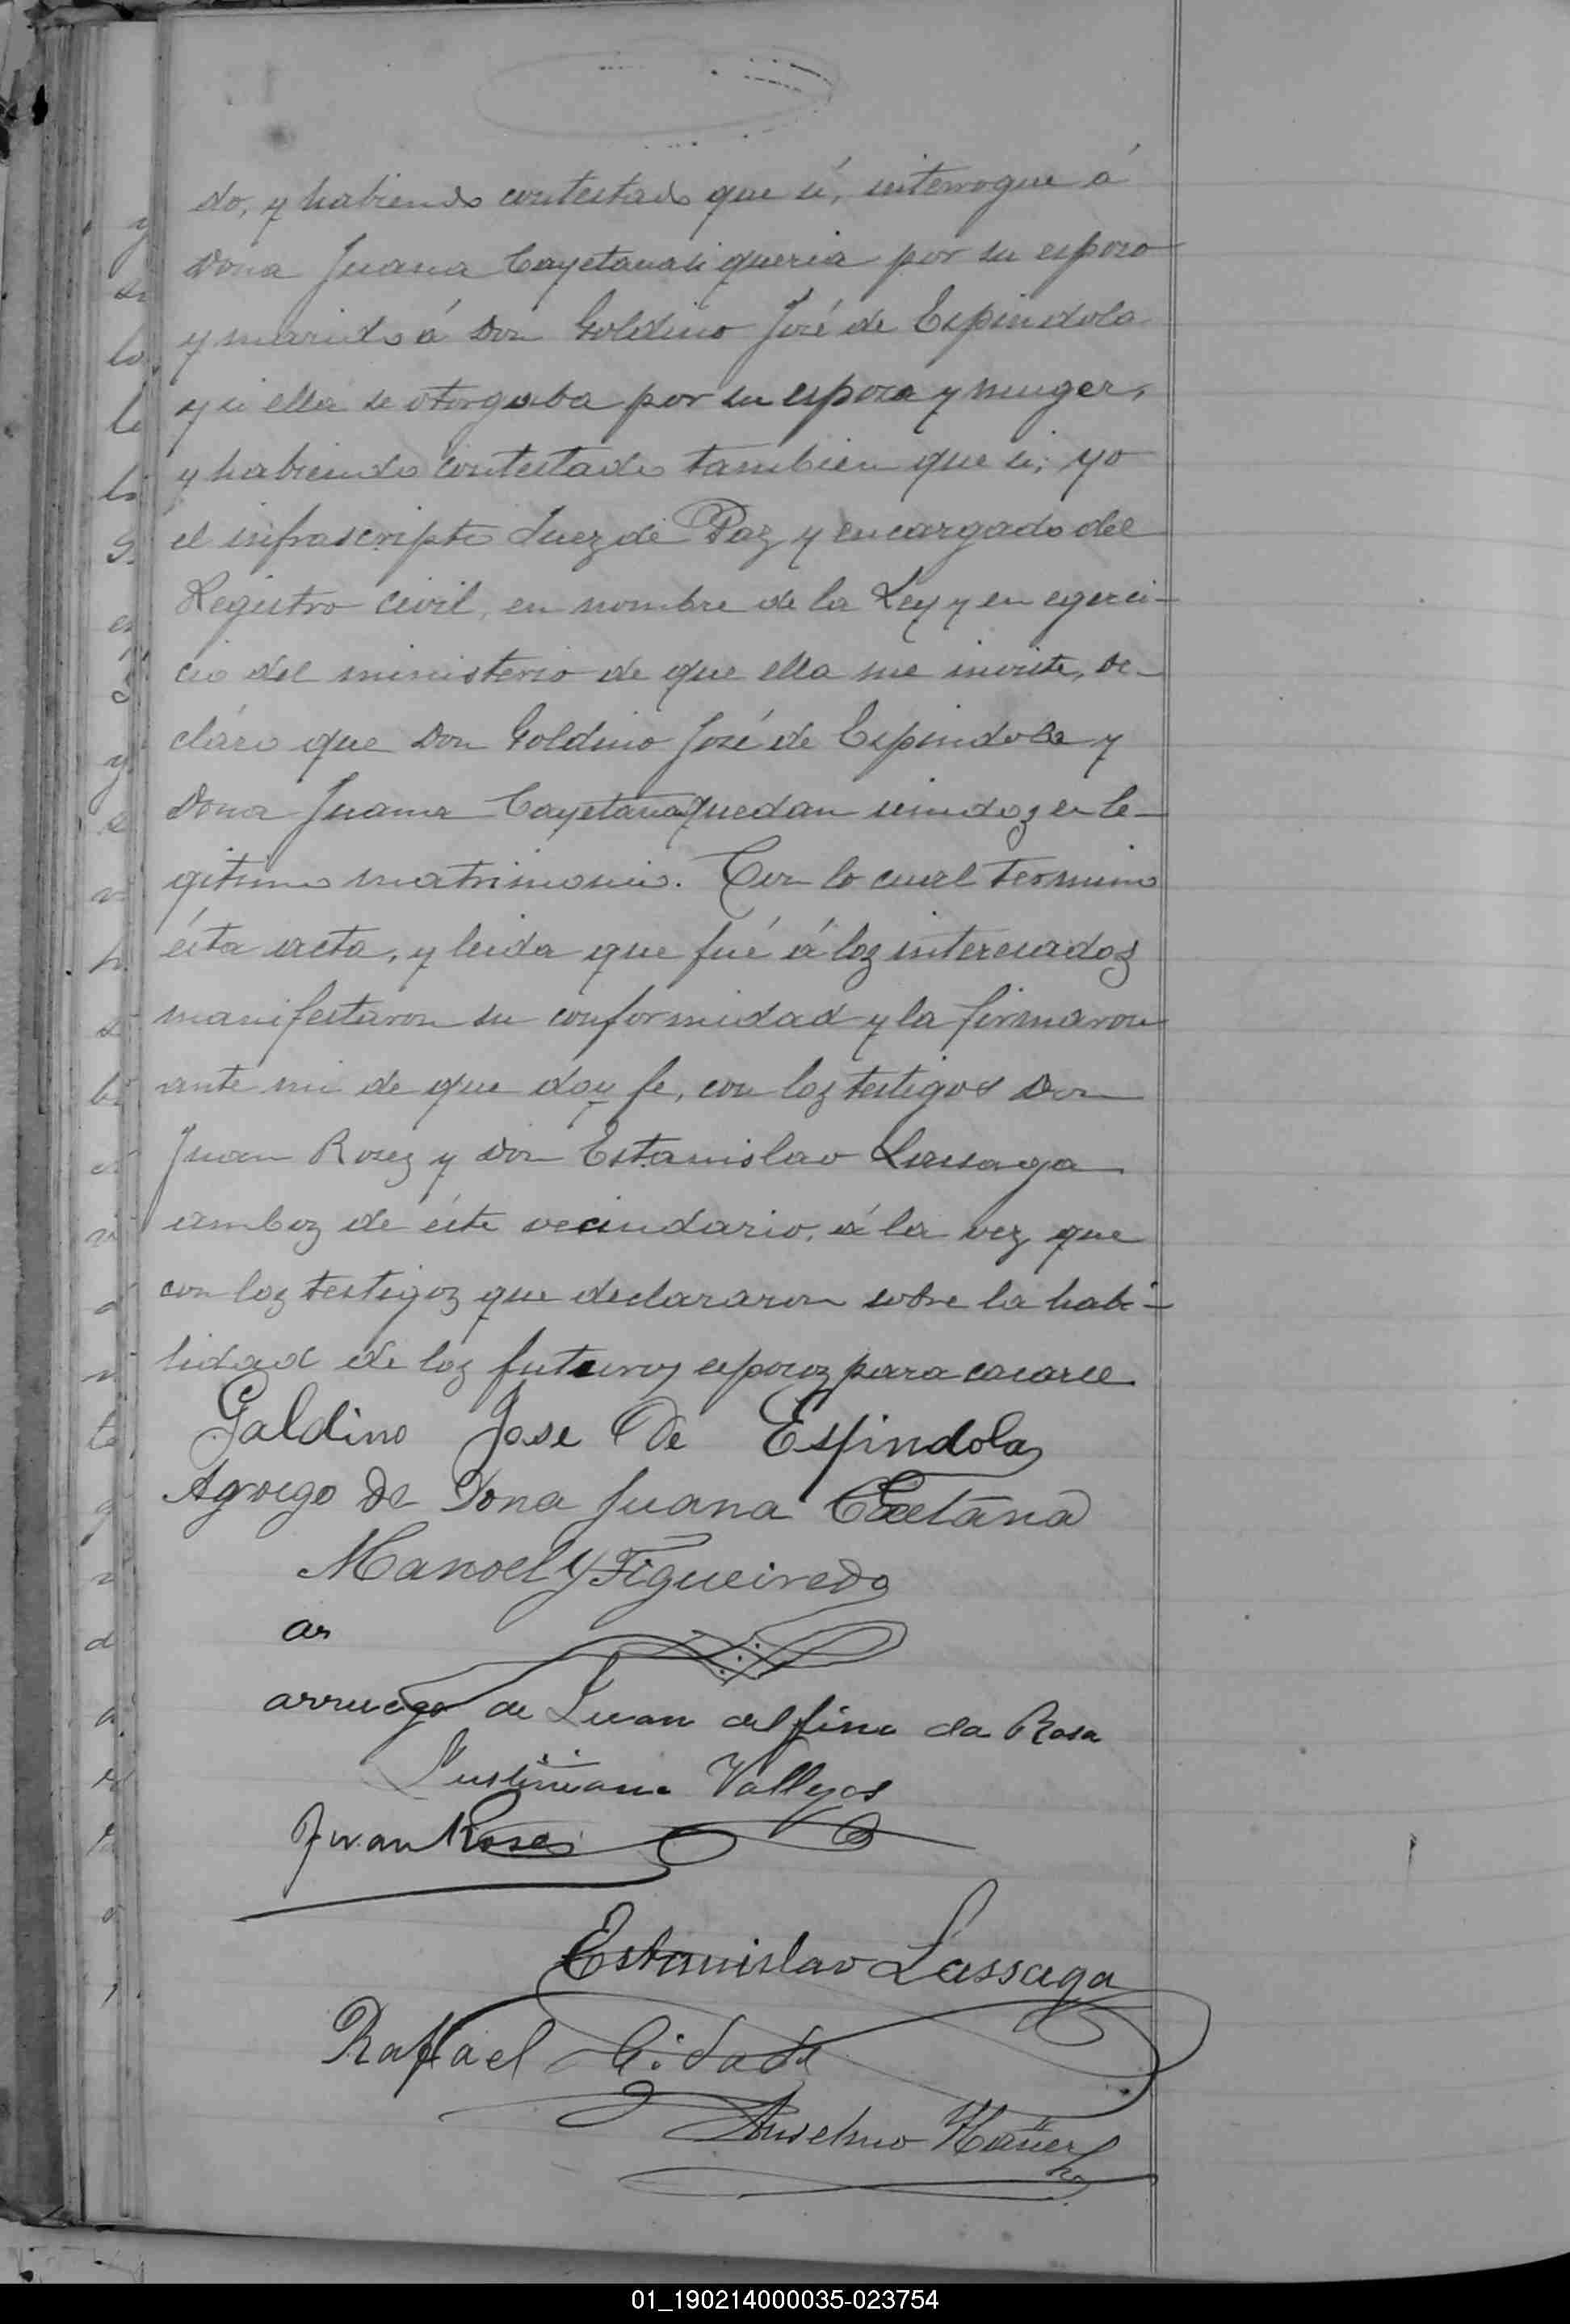 do, y habiendo contestado que si, interrogue á
Dona Juana Cayetana si queria por su esposo
y marido á Don Goldino José de Espindola
y si ella se otorgaba por su esposa y muger,
y habiendo contestado tambien que si; yo
el infrascripto Juez de Paz y encargado del
Registro civil, en nombre de la Ley y en egerci-
cio del ministerio de que ella me inviste, de-
cláro que Don Goldino José de Espindola y
Dona Juana Cayetana quedan unidoz en le-
gitimo matrimonio. Con lo cual termino
ésta acta, y leida que fué á loz interesadoz
manifestaron su conformidad y la firmaron
ante mi de que doy fe, con loz testigos Don
Juan Rosez y Don Estanislao Lassaga
amboz de éste vecindario, á la vez que
con loz testigoz que declararon sobre la habi-
lidad de loz futuroz esposoz para casarse
Galdino Jose De Espindola
Agroego De Dona Juana Caetana
Manoel Y Figueiredo
ar
arruego de Juan delfino da Rosa
Justiniano Vallejos
Juan Roses
Estanislao Lassaga
Raffael Cidade
Anselmo
01_190214000035-023754